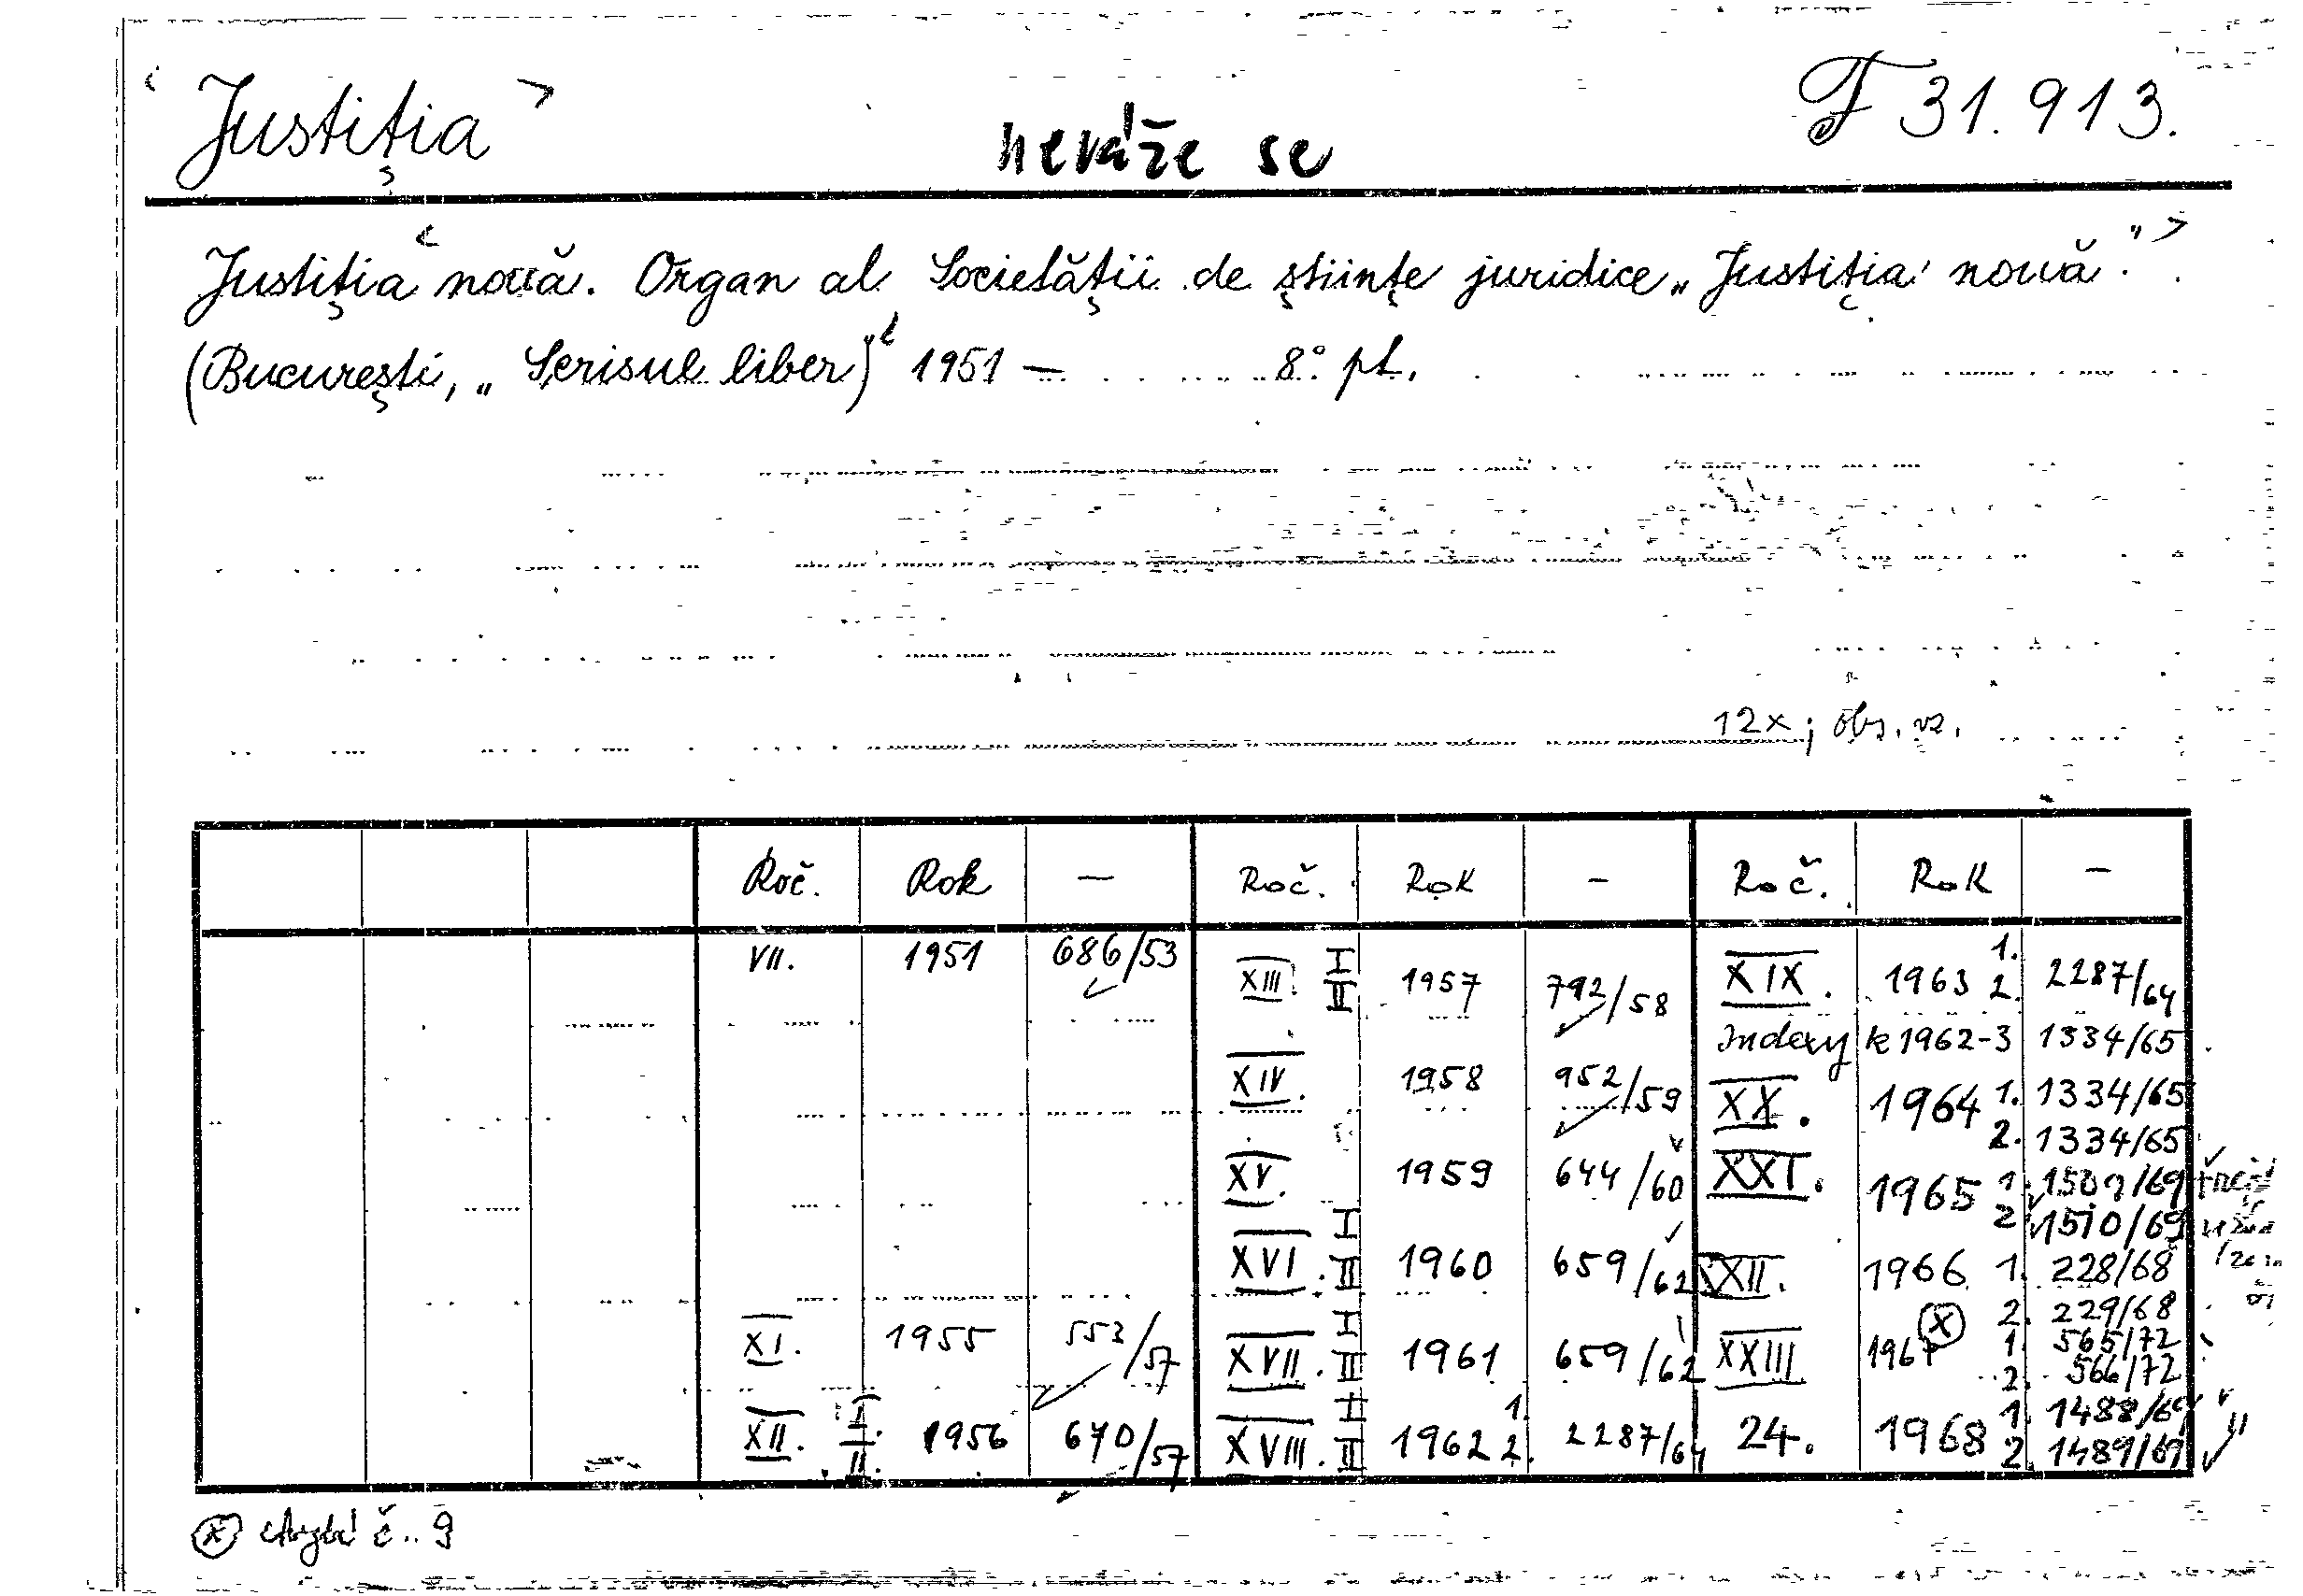 ‹ Justiția ›
neváže se
F 31.913.
Justiția ‹ nouă. Organ al Societății de științe juridice „Justiția nouă." ›
(București, „Scrisul liber)" 1951 — 8° pt.
12x; obj. vz.
Roč. Rok — Roč. Rok — Roč. Rok —
VII. 1951 686/53
XI. 1955 553/57
XII. I. II. 1956 670/57
XIII. I II 1957 792/58
XIV. 1958 952/59
XV. 1959 644/60
XVI. I II 1960 659/62
XVII. I II 1961 659/62
XVIII. I II 1962 1. 2. 2287/64
XIX. 1963 1. 2. 2287/64
Indexy k 1962-3 1334/65
XX. 1964 1. 1334/65
2. 1334/65
XXI. 1965 1. 1509/69
2. 1510/69
XXII. 1966 1. 228/68
2. 229/68
XXIII 1967 (x) 1. 565/72
2. 566/72
24. 1968 1. 1488/69
2. 1489/69
(x) chybí č. 9